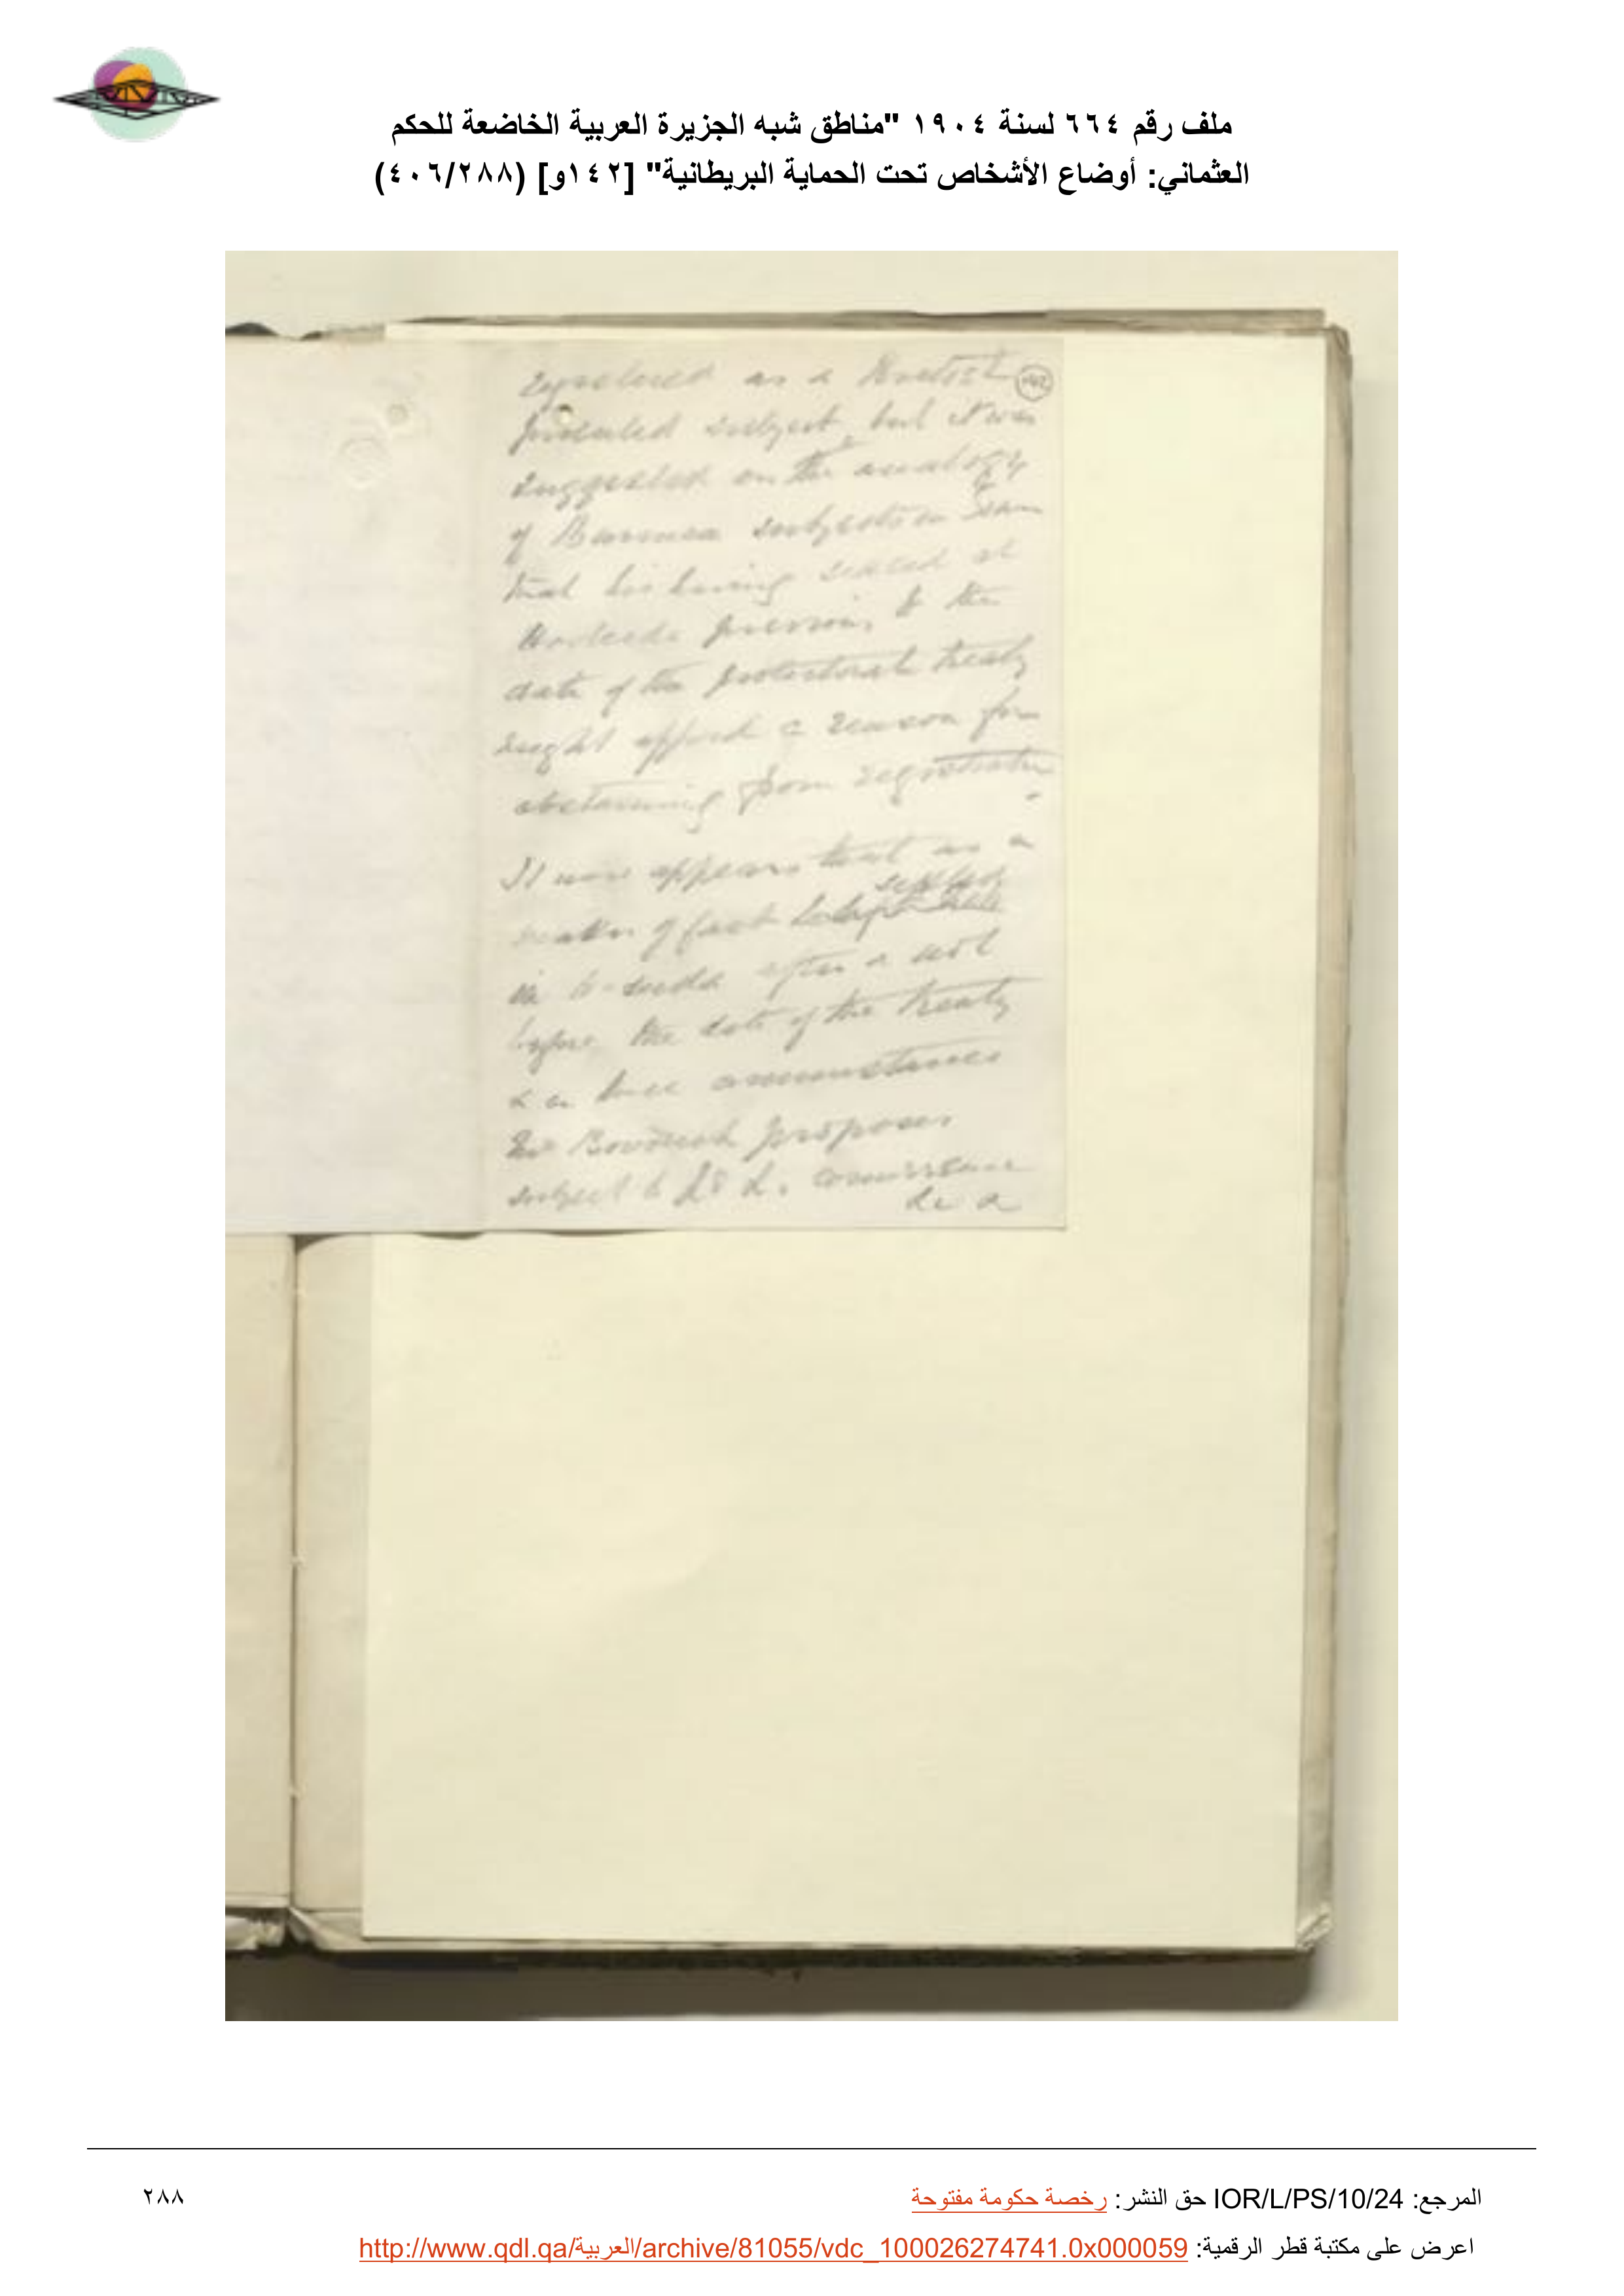 ملف رقم ٦٦٤ لسنة ١٩٠٤ "مناطق شبه الجزيرة العربية الخاضعة للحكم
العثماني: أوضاع الأشخاص تحت الحماية البريطانية" [١٤٢و] (٤٠٦/٢٨٨)
registered as a British
142
protected subject, but it was
suggested on the analogy
of Burmese subjects in Siam
that his having settled at
Hodeida previous to the
date of the protectorate treaty
might afford a reason for
abstaining from registration
It now appears that as a
matter of fact he settled
in Hodeida after & not
before the date of the treaty
& in these circumstances
proposes
subject to Ld L. concurrence
المرجع: IOR/L/PS/10/24 حق النشر: رخصة حكومة مفتوحة
٢٨٨
اعرض على مكتبة قطر الرقمية: http://www.qdl.qa/العربية/archive/81055/vdc_100026274741.0x000059